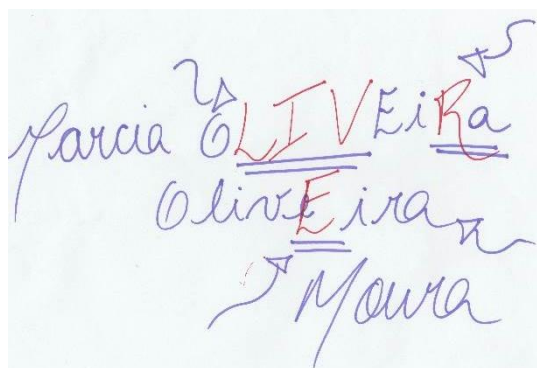 Marcia OLIVEiRa
OlivEira
Moura